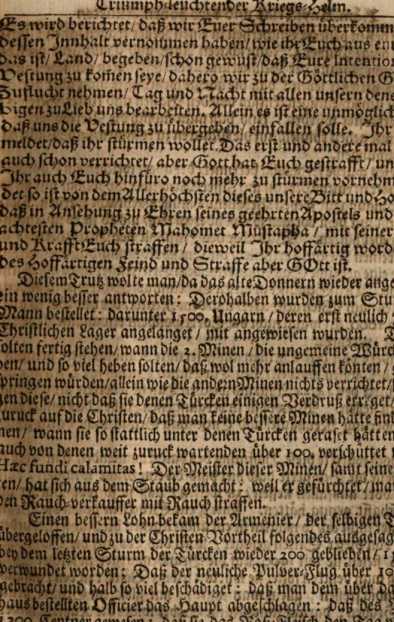 Triumph-leuchtender Kriegs-Helm.
Es wird berichtet/ daß wir Euer Schreiben überkomm
dessen Innhalt vernommen haben/ wie ihr Euch aus
das ist/ Land/ begeben/ schon gewust/ daß Eure Intention
Vestung zu kom̃en seye/ dahero wir zu der Göttlichen G
Zuflucht nehmen/ Tag und Nacht mit allen unsern dene
bigen zu Lieb uns bearbeiten. Allein es ist eine unmöglich
daß uns die Vestung zu übergeben/ einfallen solle. Ihr
meldet/ daß ihr stürmen wollet. Das erst und andere mal
auch schon verrichtet/ aber Gott hat Euch gestrafft/ un
Ihr auch Euch hinfüro noch mehr zu stürmen vornehm
det so ist von dem Allerhöchsten dieses unsere Bitt und Ho
daß in Ansehung zu Ehren seines geehrten Apostels und
achtesten Propheten Mahomet Mustapha/ mit seiner
und Krafft Euch straffen/ dieweil Ihr hoffärtig word
des Hoffärtigen Feind und Straffe aber GOtt ist.
Diesem Trutz wolte man/ da das alte Donnern wieder ange
ein wenig besser antworten: Derohalben wurden zum Stu
Mann bestellet: darunter 1500. Ungarn/ deren erst neulich
Christlichen Lager angelanget/ mit angewiesen wurden.
olten fertig stehen/ wann die 2. Minen/ die ungemeine Würc
en/ und so viel heben solten/ daß wol mehr anlauffen könten/
springen würden/ allein wie die andern Minen nichts verrichtet/
en diese/ nicht daß sie denen Türcken einigen Verdruß erreget/
uruck auf die Christen/ daß man keine bessere Minen hätte
nen/ wann sie so stattlich unter denen Türcken geraset hätten
auch von denen weit zuruck wartenden über 100. verschüttet
Hæc fundi calamitas! Der Meister dieser Minen/ samt seine
en/ hat sich aus dem Staub gemacht: weil er gefürchtet/ ma
den Rauch-verkauffer mit Rauch straffen.
Einen bessern Lohn bekam der Armenier/ der selbigen T
übergeloffen/ und zu der Christen Vortheil folgendes ausgesag
bey dem letzten Sturm der Türcken wieder 200 geblieben/
verwundet worden: Daß der neuliche Pulver-Flug über
gebracht/ und halb so viel beschädiget: daß man dem über
haus bestellten Officier das Haupt abgeschlagen: daß des